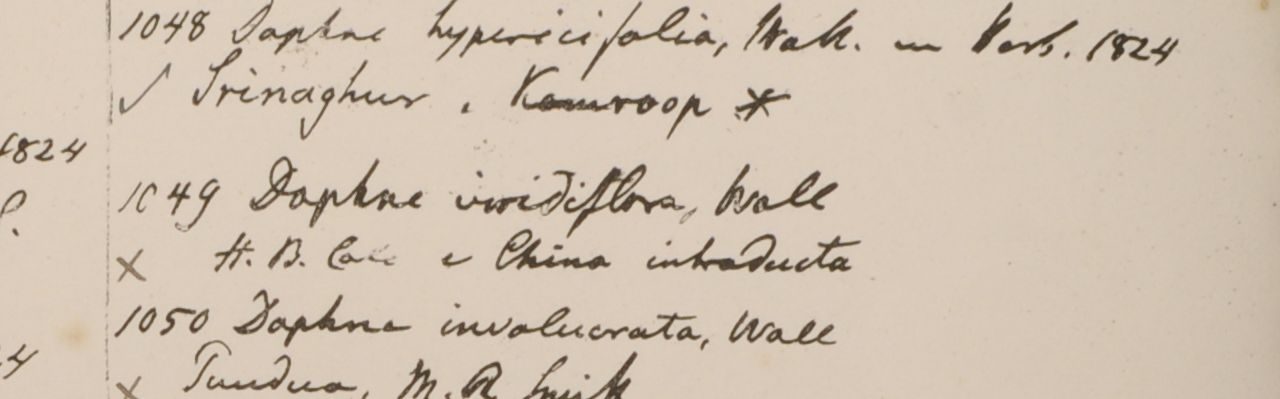 1048 Daphne hypericifolia, Wall. in Herb. 1824
✓ Srinaghur. Kamroop *
1824
1049 Daphne viridiflora, Wall
x H. B. Calc e China introducta
1050 Daphne involucrata, Wall
4
x Tundua, M. R. Smith